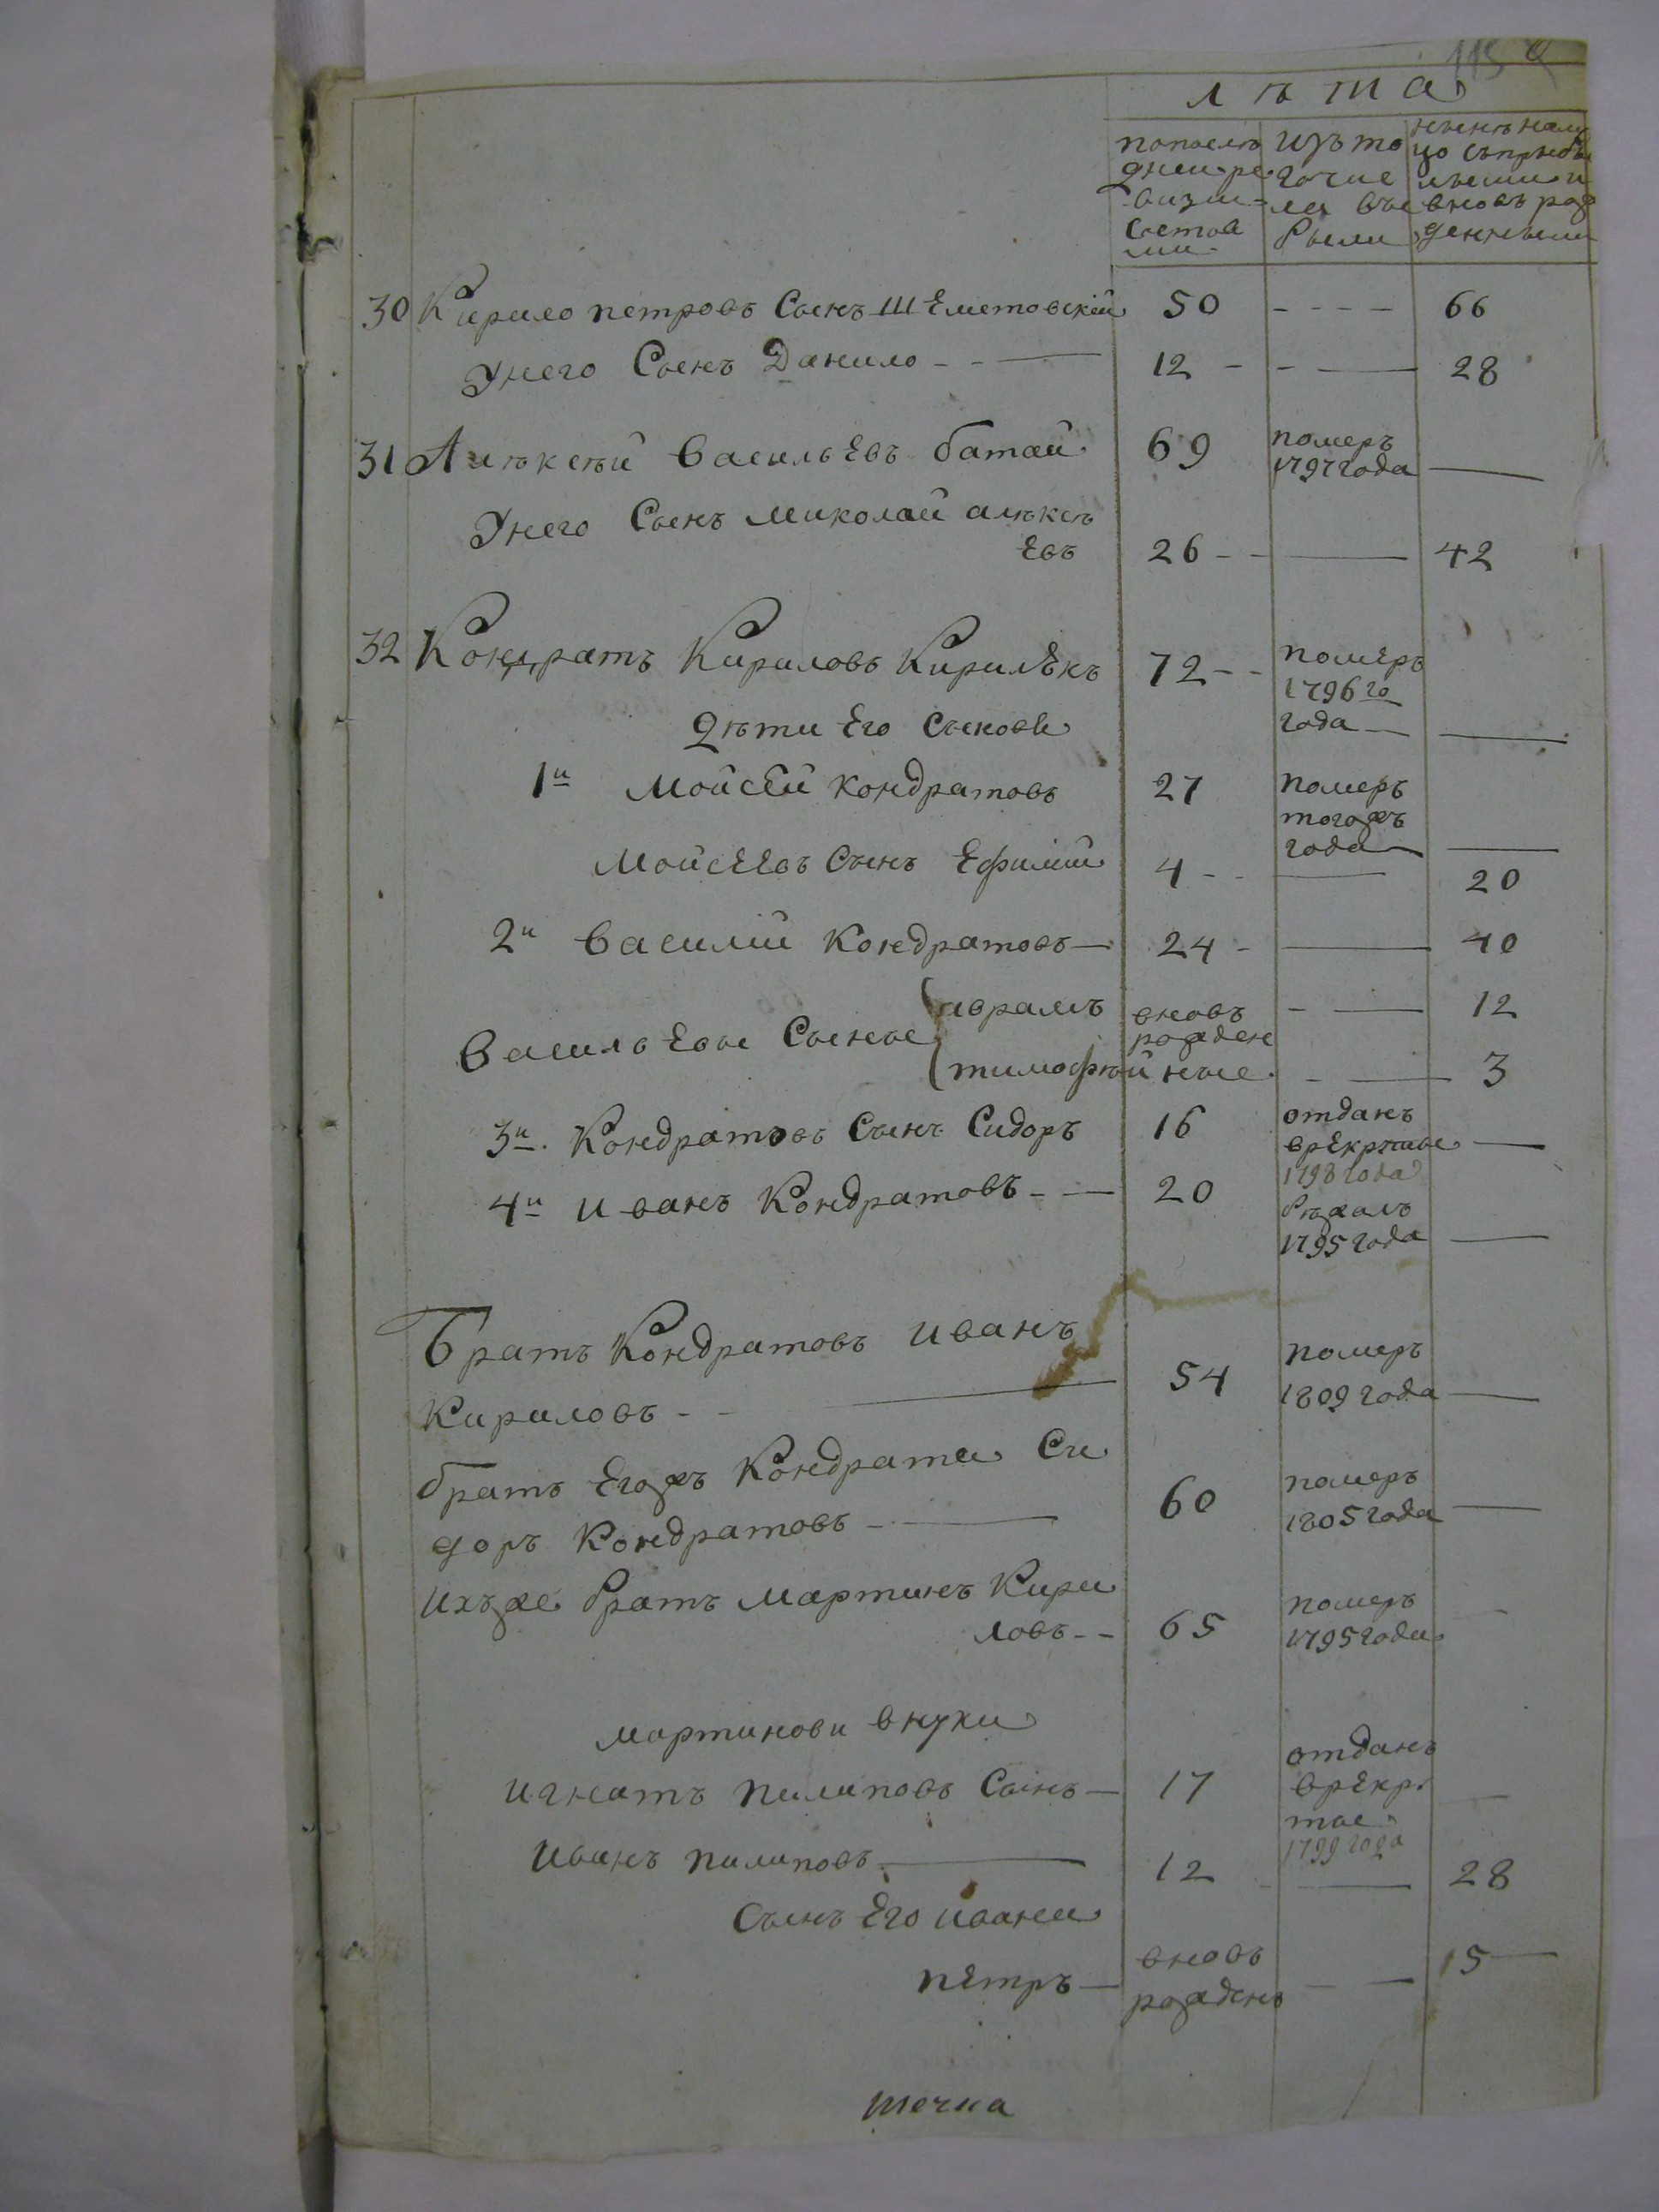 115
лѣта
попослѣ
дней ре
визіи
состоя
ли
изъ то
го чис
ла вы
были
нынѣ на ли
цо съприбы
лыми и
вновь рож
денными
30 Кирило петровъ Сынъ шЕметовскій 50 - - - - 66
Унего Сынъ Данило - - — 12 - - — 28
31 Алѣксѣй васильЕвъ батай 69 померъ 1797 года —
Унего Сынъ миколай алѣксѣ
Евъ 26 - - — 42
32 Кондратъ Кириловъ КирилЕкъ 72 - - помЕръ 1796 го года — —
Дѣти Его Сынове
1й мойсей кондратовъ 27 померъ тогожъ года —
мойсЕЕвъ Сынъ Ефимій 4 - - — 20
2й василій Кондратовъ — 24 - — 40
васильЕвы Сыны
аврамъ - — 12
тимофѣй - — 3
вновь рожден ные
3й Кондратовъ Сынъ Сидоръ 16 отданъ врЕкруты 1798 года —
4й иванъ Кондратовъ - — 20 бѣжалъ 1795 года —
братъ Кондратовъ иванъ
Кириловъ - - — 54 померъ 1809 года —
братъ Егожъ Кондрата Си
доръ Кондратовъ - — 60 померъ 1805 года —
ихъже братъ мартинъ Кири
ловъ - - 65 померъ 1795 года —
мартинови внуки
игнатъ пилиповъ Сынъ — 17 отданъ врЕкр ты 1799 года —
иванъ пилиповъ — 12 - — 28
Сынъ Его ивана
пЕтръ — вновь рожденъ — — 15 —